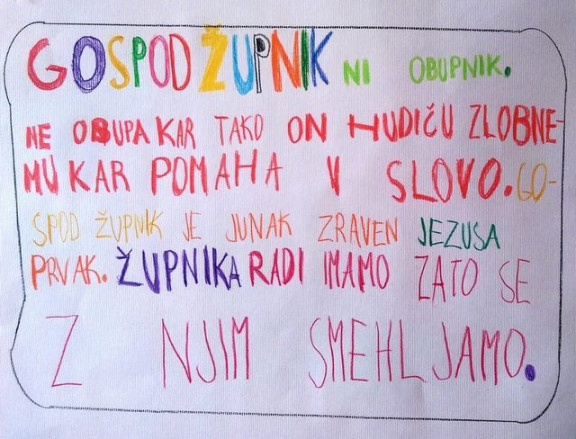 GOSPOD ŽUPNIK NI OBUPNIK.
NE OBUPA KAR TAKO ON HUDIČU ZLOBNE-
MU KAR POMAHA V SLOVO. GO-
SPOD ŽUPNIK JE JUNAK ZRAVEN JEZUSA
PRVAK. ŽUPNIKA RADI IMAMO ZATO SE
Z NJIM SMEHLJAMO.